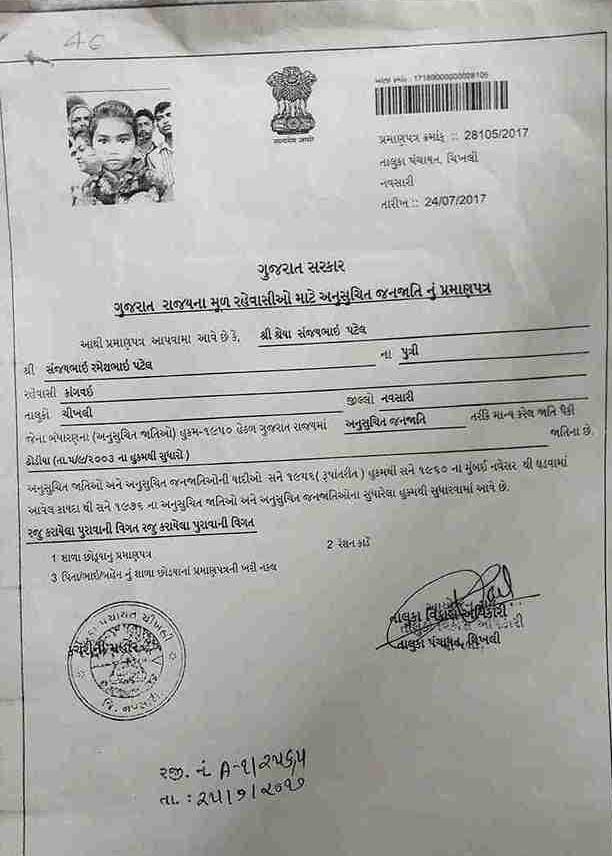 46
ક્રમાંક : 17189000000028105
પ્રમાણપત્ર ક્રમાંક :: 28105/2017
તાલુકા પંચાયત, ચિખલી
નવસારી
તારીખ :: 24/07/2017
सत्यमेव जयते
ગુજરાત સરકાર
ગુજરાત રાજયના મૂળ રહેવાસીઓ માટે અનુસુચિત જનજાતિ નું પ્રમાણપત્ર
આથી પ્રમાણપત્ર આપવામાં આવે છે કે, શ્રી શ્રેયા સંજયભાઇ પટેલ
શ્રી સંજયભાઇ રમેશભાઇ પટેલ ના પુત્રી
રહેવાસી કાંગવઇ
તાલુકો ચીખલી જીલ્લો નવસારી
જેના બંધારણના (અનુસુચિત જાતિઓ) હુકમ-૧૯૫૦ હેકળ ગુજરાત રાજયમાં અનુસુચિત જનજાતિ તરીકે માન્ય કરેલ જાતિ પૈકી
ઢોડીયા (તા.૫/૯/૨૦૦૩ ના હુકમથી સુધારો ) જાતિના છે.
અનુસુચિત જાતિઓ અને અનુસુચિત જનજાતિઓની યાદીઓ સને ૧૯૫૬( રૂપાંતરીત ) હુકમથી સને ૧૯૬૦ ના મુંબઇ નવેસર થી ઘડવામાં
આવેલ કાયદા થી સને ૧૯૭૬ ના અનુસુચિત જાતિઓ અને અનુસુચિત જનજાતિઓના સુધારેલા હુકમથી સુધારવામાં આવે છે.
રજુ કરાયેલા પુરાવાની વિગત રજુ કરાયેલા પુરાવાની વિગત
1 શાળા છોડયાનુ પ્રમાણપત્ર 2 રેશન કાર્ડ
3 પિતા/ભાઇ/બહેન નું શાળા છોડયાનાં પ્રમાણપત્રની ખરી નકલ
તાલુકા વિકાસ અધિકારી
તાલુકા પંચાયત, ચિખલી
પંચાયત ચીખલી
જિ. નવસારી
રજી. નં. A-1/૨૫૬૫
તા. : ૨૫/૭/૨૦૧૭